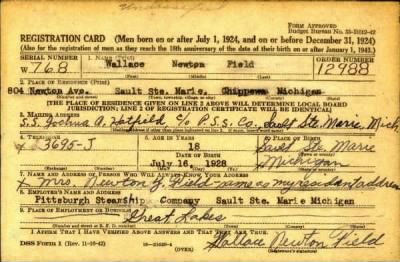 Form Approved
Budget Bureau No. 33-R012-42
REGISTRATION CARD (Men born on or after July 1, 1924, and on or before December 31, 1924)
(Also for the registration of men as they reach the 18th anniversary of the date of their birth on or after January 1, 1943.)
SERIAL NUMBER
ORDER NUMBER
W 768 Wallace Newton Field 12988
2. PLACE OF RESIDENCE (Print)
804 Newton Ave. Sault Ste. Marie, Chippewa Michigan
(THE PLACE OF RESIDENCE GIVEN ON LINE 2 ABOVE WILL DETERMINE LOCAL BOARD JURISDICTION; LINE 2 OF REGISTRATION CERTIFICATE WILL BE IDENTICAL)
3. MAILING ADDRESS
S.S. Joshua A. Hatfield c/o P.S.S. Co., Sault Ste. Marie, Mich
4. TELEPHONE
5. AGE IN YEARS
6. PLACE OF BIRTH
3695-J 18 Sault Ste Marie
DATE OF BIRTH
July 16, 1928 Michigan
7. NAME AND ADDRESS OF PERSON WHO WILL ALWAYS KNOW YOUR ADDRESS
Mrs. Newton Field same as my residant address
8. EMPLOYER'S NAME AND ADDRESS
Pittsburgh Steamship Company Sault Ste. Marie Michigan
9. PLACE OF EMPLOYMENT OR BUSINESS
Great Lakes
I AFFIRM THAT I HAVE VERIFIED ABOVE ANSWERS AND THAT THEY ARE TRUE.
DSS Form 1 (Rev. 11-16-42)
(OVER)
Wallace Newton Field